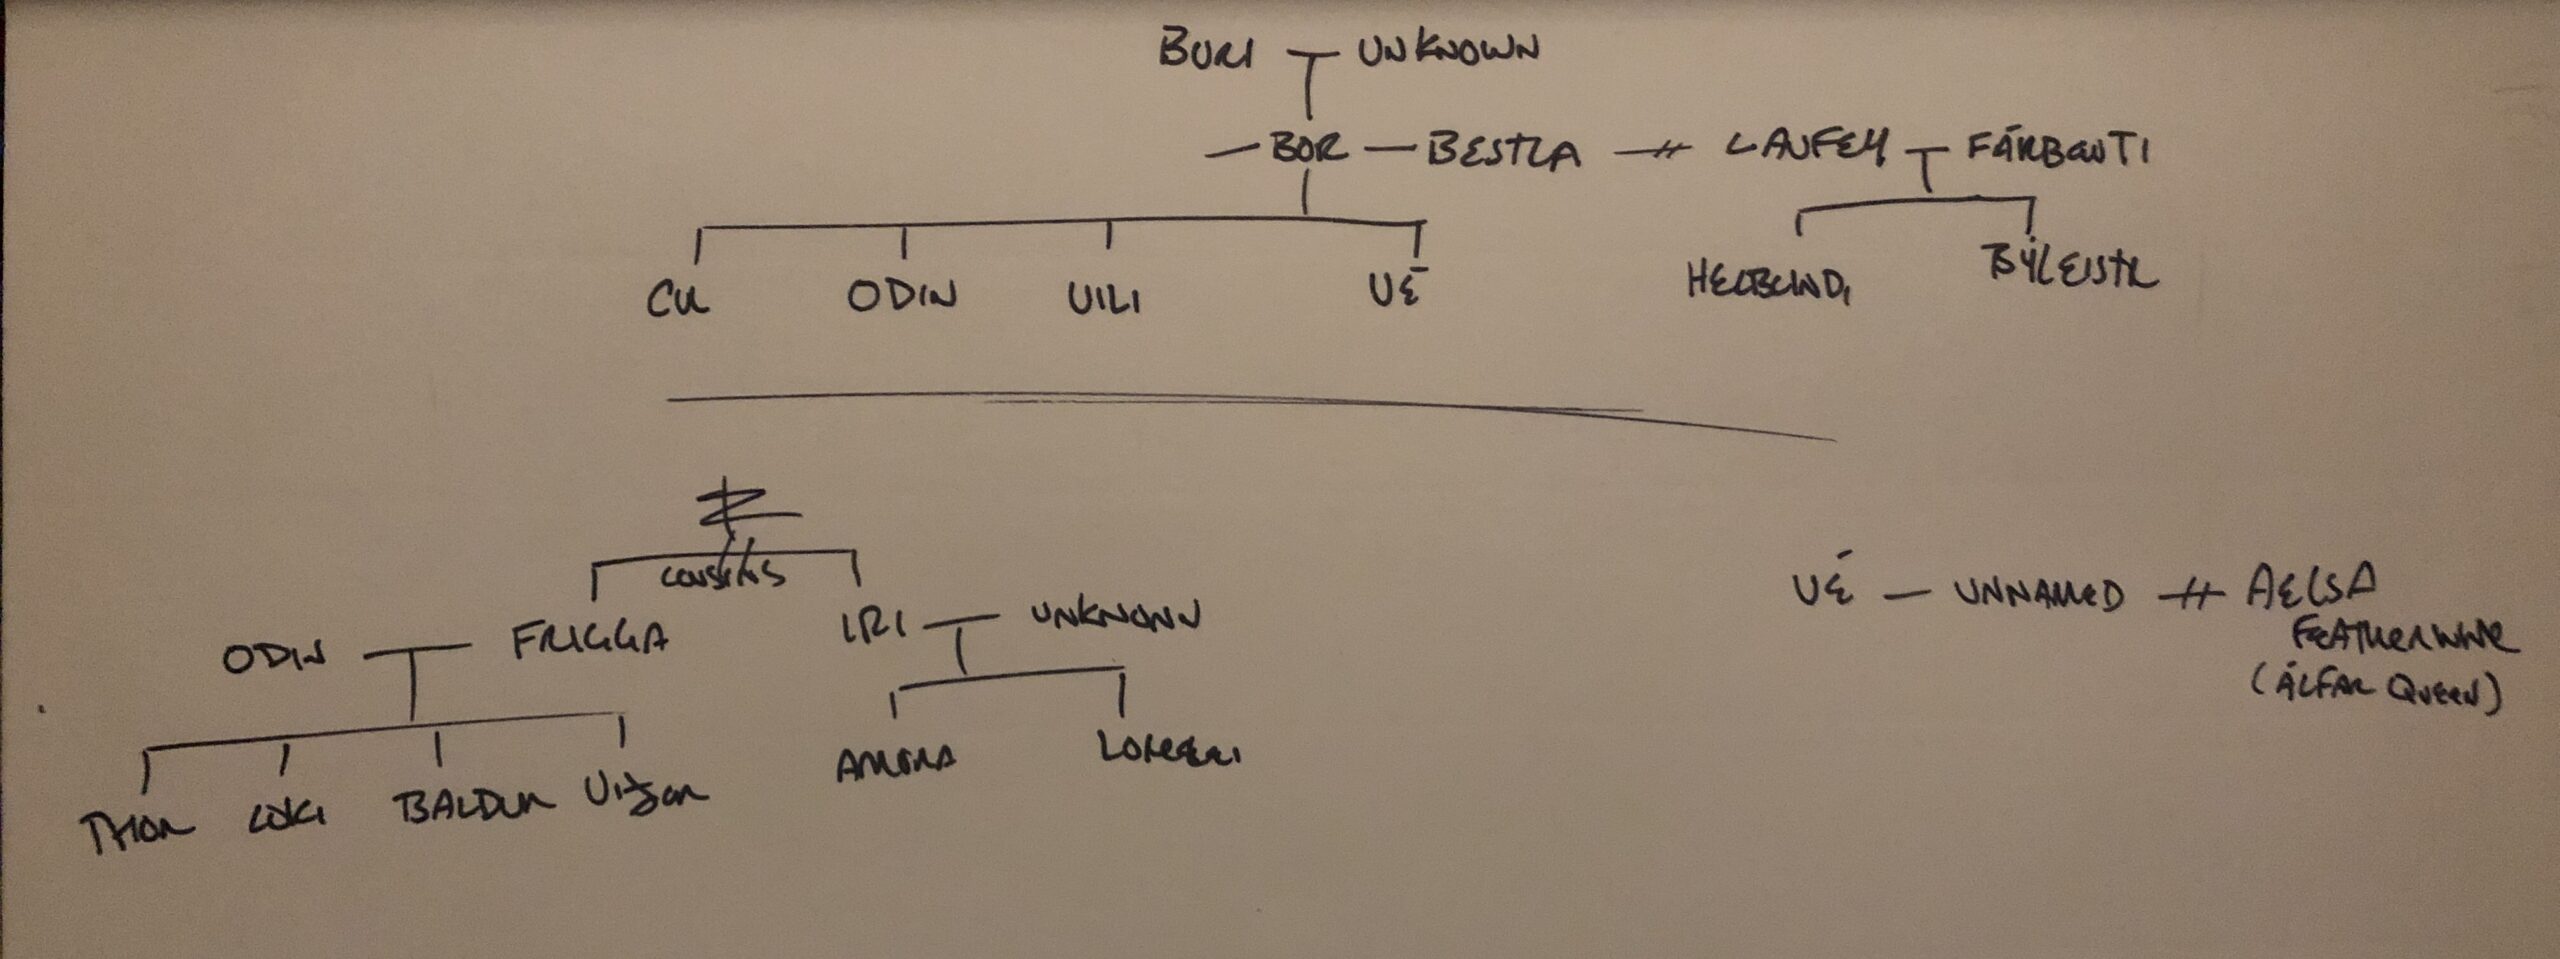 BURI UNKNOWN
BOR BESTLA LAUFEY FÁRBAUTI
CUL ODIN VILI VÉ HELBLINDI BÝLEISTR
COUSINS
VÉ UNNAMED AELSA
FEATHERWINE
(ÁLFAR QUEEN)
ODIN FRIGGA IRI UNKNOWN
THOR LOKI BALDUR AMORA LORELEI